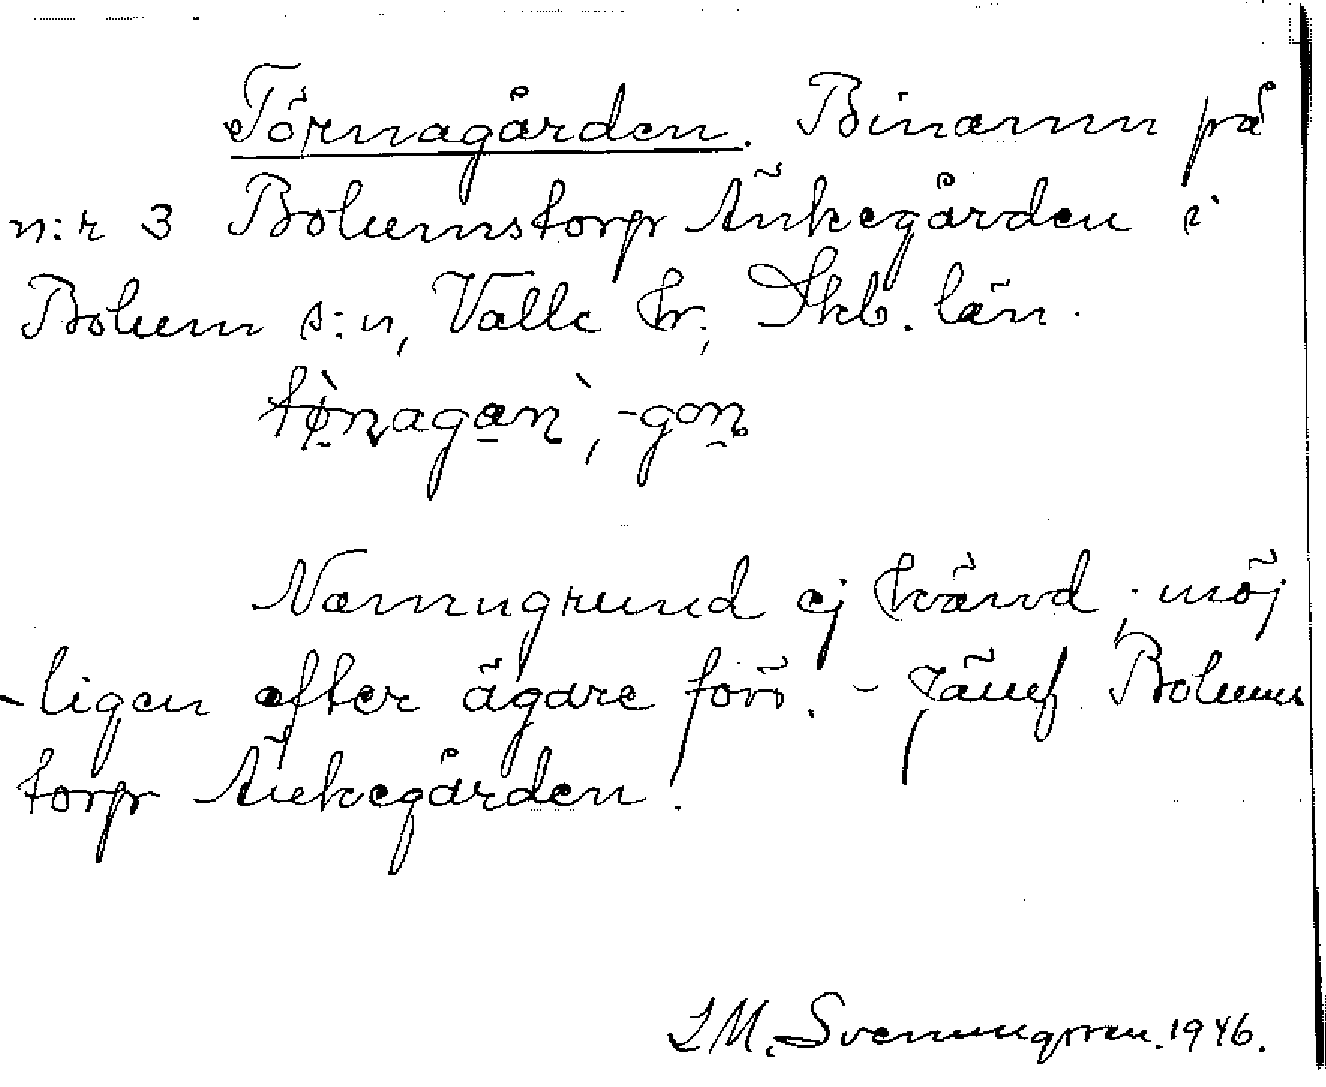 Törnagården. Binamn på
n:r 3 Bolumstorp Änkegården i
Bolum s:n, Valle hr, Skb. län.
tø̀nagan`, -gon
Namngrund ej känd; möj
-ligen efter ägare förr. - Jämf. Bolums
torp Änkegården.
I.M. Svenungsson. 1946.